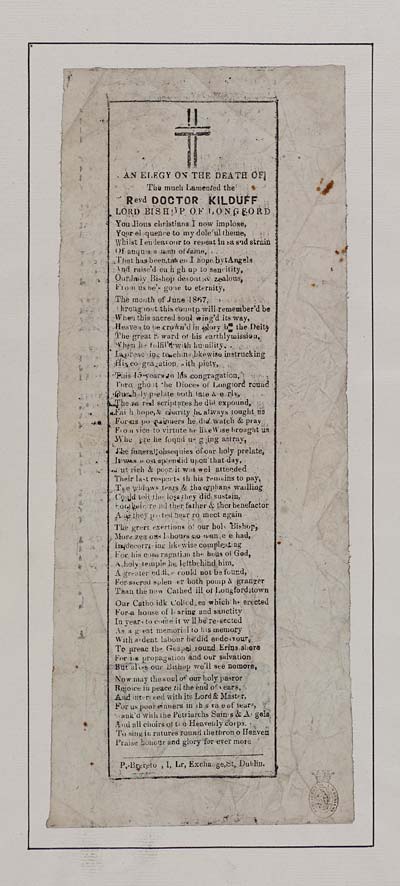 AN ELEGY ON THE DEATH OF
The much Lamented the
Revd DOCTOR KILDUFF
LORD BISHOP OF LONGFORD
christians I now implose,
Your eloquence to my doleful theme,
Whilst I endeavour to repeat in sad strain
Of
That has been taken I hope by Angels
And raise'd on high up to sanctity,
Our holy Bishop zealous,
From us he's gone to eternity,
The month of June 1867,
Throughout this country will remember'd be
When this sacred soul wing'd its way,
Heaven to be in glory by the Deity
The great Reward of his earthly mission,
When he fulfill'd with humility,
likewise instructing
His congregation with piety,
This 15 years to his congragation,
Throughout the Dioces of Longford round
holy prelate both late & early,
The sacred scriptures he did expound,
Faith hope, & charity he always tought us
For us poor sinners he did watch & pray
From vice to virtute he likewise brought us
Where he found us going astray,
The funeral obsequies of our holy prelate,
It was most splendid upon that day,
But rich & poor it was well attended
Their last respects to his remains to pay,
The widows tears & the orphans wailling
Could tell the loss they did sustain,
father & their benefactor
they to meet again
The grert exertions of our holy Bishop,
he had,
likewise compleating
For his congragation the hous of God,
A holy temple he left behind him,
A greater could not be found,
For sacred splender both pomp & granger
Than the new Cathedrill of Longfordtown
Our Catholidk College, es which he erected
For a house of learing and sanctity
In years to come it will be respected
As a great memorial to his memory
With ardent labour he did endeavour,
To preac the Gospel round Erins shore
For the propagation and our salvation
But alas our Bishop we'll see nomore,
Now may the soul of our holy pastor
Rejoice in peace til the end of years,
And interceed with its Lord & Master,
For us poor sinners in this vale of tears,
Rank'd with the Petriarchs Saints & Angels
And all choirs of the Heavenly corps.
To sing in ratures round the throno Heaven
Praise honour and glory for ever more
P. Brereton, 1, Lr, Exchange, St, Dublin.